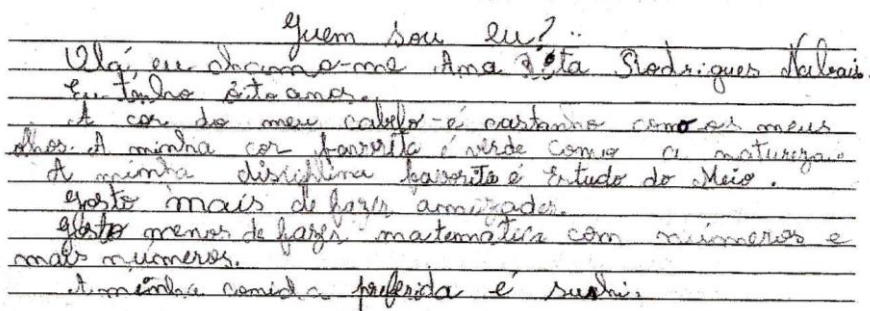 Quem sou eu?
Olá, eu chamo-me Ana Rita Rodrigues Nabais.
Eu tenho oito anos.
A cor do meu cabelo é castanho como os meus
olhos. A minha cor favorita é verde como a natureza.
A minha disciplina favorita é Estudo do Meio.
Gosto mais de fazer amizades.
Gosto menos de fazer matemática com números e
mais números.
A minha comida preferida é sushi.